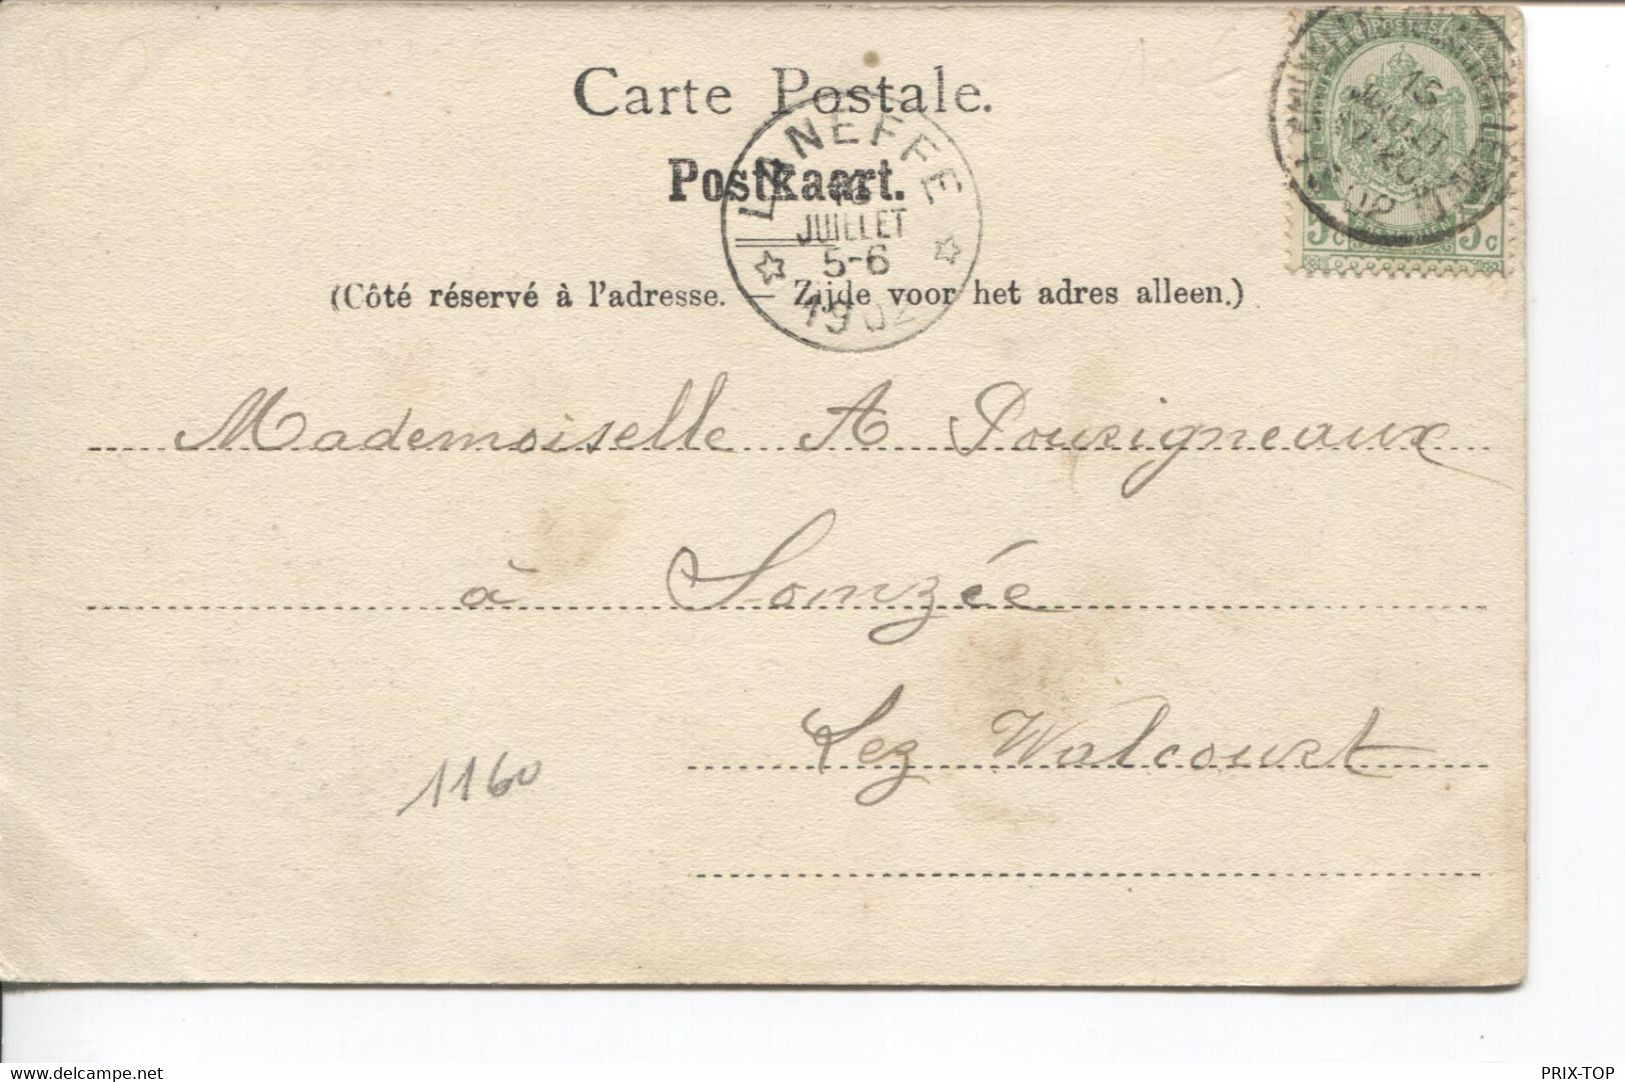 Carte Postale.
Postkaart.
(Côté réservé à l'adresse. — Zijde voor het adres alleen.)
LANEFFE
JUILLET
5-6
1902
POSTES
15
JUILLET
02
5c 5c
Mademoiselle A Pourigneaux
à Somzée
Lez Walcourt
1160
PRIX-TOP
www.delcampe.net